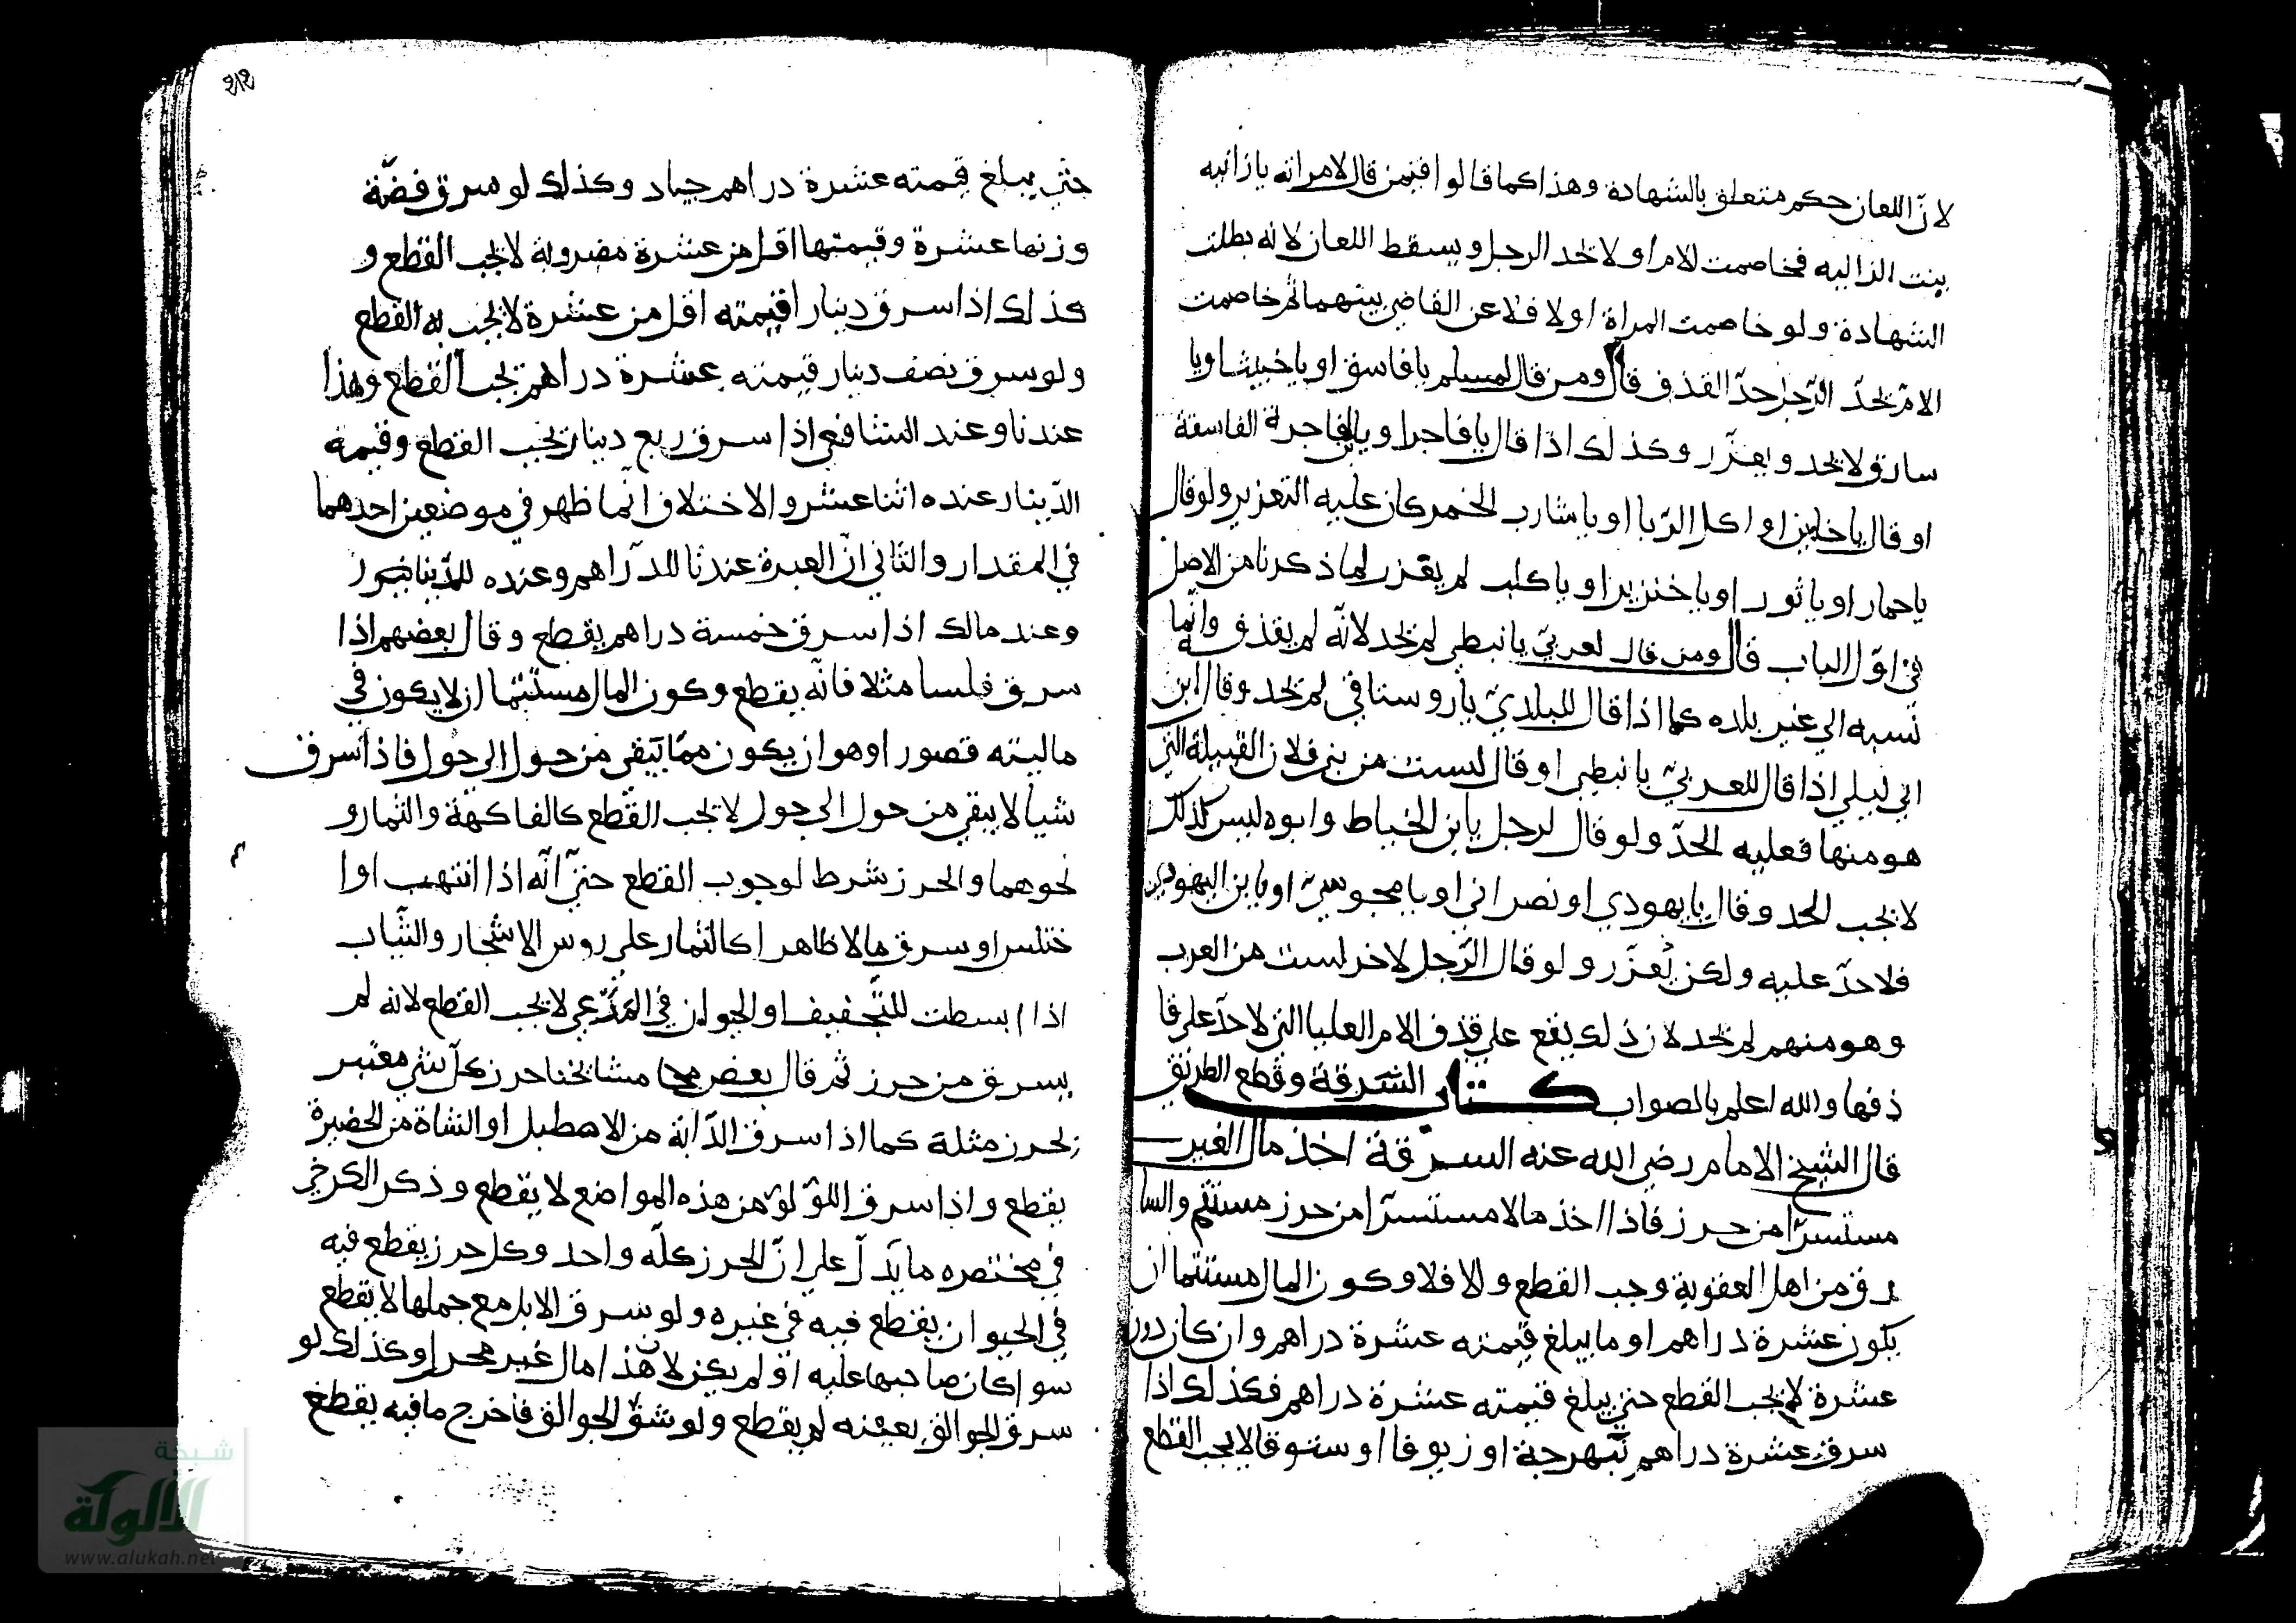 لانّ اللعان حكم متعلق بالشهادة وهذا كما قالوا فيمن قال لامراته يا زانيه
بنت الزانيه فخاصمت الام اولا تحد الرجل ويسقط اللعان لانه بطلت
الشهادة ولو خاصمت المراة اولا فلاعن القاضي بينهما ثم خاصمت
الامّ تحدّ الرّجل حدّ القذف قال ومن قال لمسلم يا فاسق او يا خبيث او يا
سارق لا يحد ويعزّر وكذلك اذا قال يا فاجر او يا ابن الفاجرة الفاسقة
او قال يا خاين او اكل الرّبا او يا شارب الخمر كان عليه التعزير ولو قال
يا حمار او يا ثور او يا خنزير او يا كلب لم يعزر لما ذكرنا من الاصل
في اوّل الباب قال ومن قال لعربيّ يا نبطي لم يحد لانّه لم يقذف وانّما
نسبه الي غير بلده كما اذا قال للبلديّ يا روستاقي لم يحد وقال ابن
ابي ليلي اذا قال للعربيّ يا نبطي او قال لست من بني فلان القبيلة التي
هو منها فعليه الحدّ ولو قال لرجل يا بن الخياط وابوه ليس كذلك
لا يجب الحد وقال يا يهودي او نصراني او يا مجوسيّ او يا بن اليهودي
فلا حدّ عليه ولكن يعزّر ولو قال الرّجل لاخر لست من العرب
وهو منهم لم يحد لان ذلك يقع علي قذف الام العليا التي لا حدّ علي قا
ذفها والله اعلم بالصواب كتاب السّرقة وقطع الطريق
قال الشيخ الامام رضي الله عنه السرقة اخذ مال الغير
مستسرّا من حرز فاذا اخذ مالا مستسرّا من حرز مستتم والسا
رق من اهل العقوبة وجب القطع والا فلا وكون المال مستتما ان
يكون عشرة دراهم او ما يبلغ قيمته عشرة دراهم وان كان دون
عشرة لا يجب القطع حتي يبلغ قيمته عشرة دراهم فكذلك اذا
سرق عشرة دراهم نبهرجة او زيوفا او ستوقا لا يجب القطع
حتي يبلغ قيمته عشرة دراهم جياد وكذلك لو سرق فضّة
وزنها عشرة وقيمتها اقل من عشرة مضروبة لا يجب القطع و
كذلك اذا سرق دينارا قيمته اقل من عشرة لا يجب به القطع
ولو سرق نصف دينار قيمته عشرة دراهم تجب القطع وهذا
عندنا وعند الشافعي اذا سرق ربع دينار تجب القطع وقيمة
الدّينار عنده اثنا عشر والاختلاف انّما ظهر في موضعين احدهما
في المقدار والثاني انّ العبرة عندنا للدّراهم وعنده للدّينار
وعند مالك اذا سرق خمسة دراهم يقطع وقال بعضهم اذا
سرق فلسا مثلا فانّه يقطع وكون المال مستتما ان لا يكون في
ماليته قصور اوهو ان يكون ممّا يبقي من حول الي حول فاذا سرق
شيأ لا يبقي من حول الي حول لا تجب القطع كالفاكهة والثمار و
نحوهما والحرز شرط لوجوب القطع حتيّ انّه اذا انتهب او ا
ختلس او سرق مالا ظاهرا كالثمار علي روس الاشجار والثّياب
اذا ابسطت للتّجفيف او الحيوان في المرعي لا يجب القطع لانه لم
يسرق من حرز ثم قال بعض مشايخنا حرز كلّ شي معتبر
بحرز مثلة كما اذا سرق الدّابة من الاصطبل او الشاة من الحضيرة
يقطع واذا سرق اللؤلؤ من هذه المواضع لا يقطع وذكر الكرخي
في مختصره ما يدلّ علي انّ الحرز كلّه واحد وكل حرز يقطع فيه
في الحيوان يقطع فيه في غيره ولو سرق الابل مع حملها لا يقطع
سوا كان صاحبها عليه او لم يكن لان هذا مال غير محرز وكذلك لو
سرق الجوالق بعينه لم يقطع ولو شقّ الجوالق فاخرج ما فيه يقطع
شبكة
الألوكة
www.alukah.net